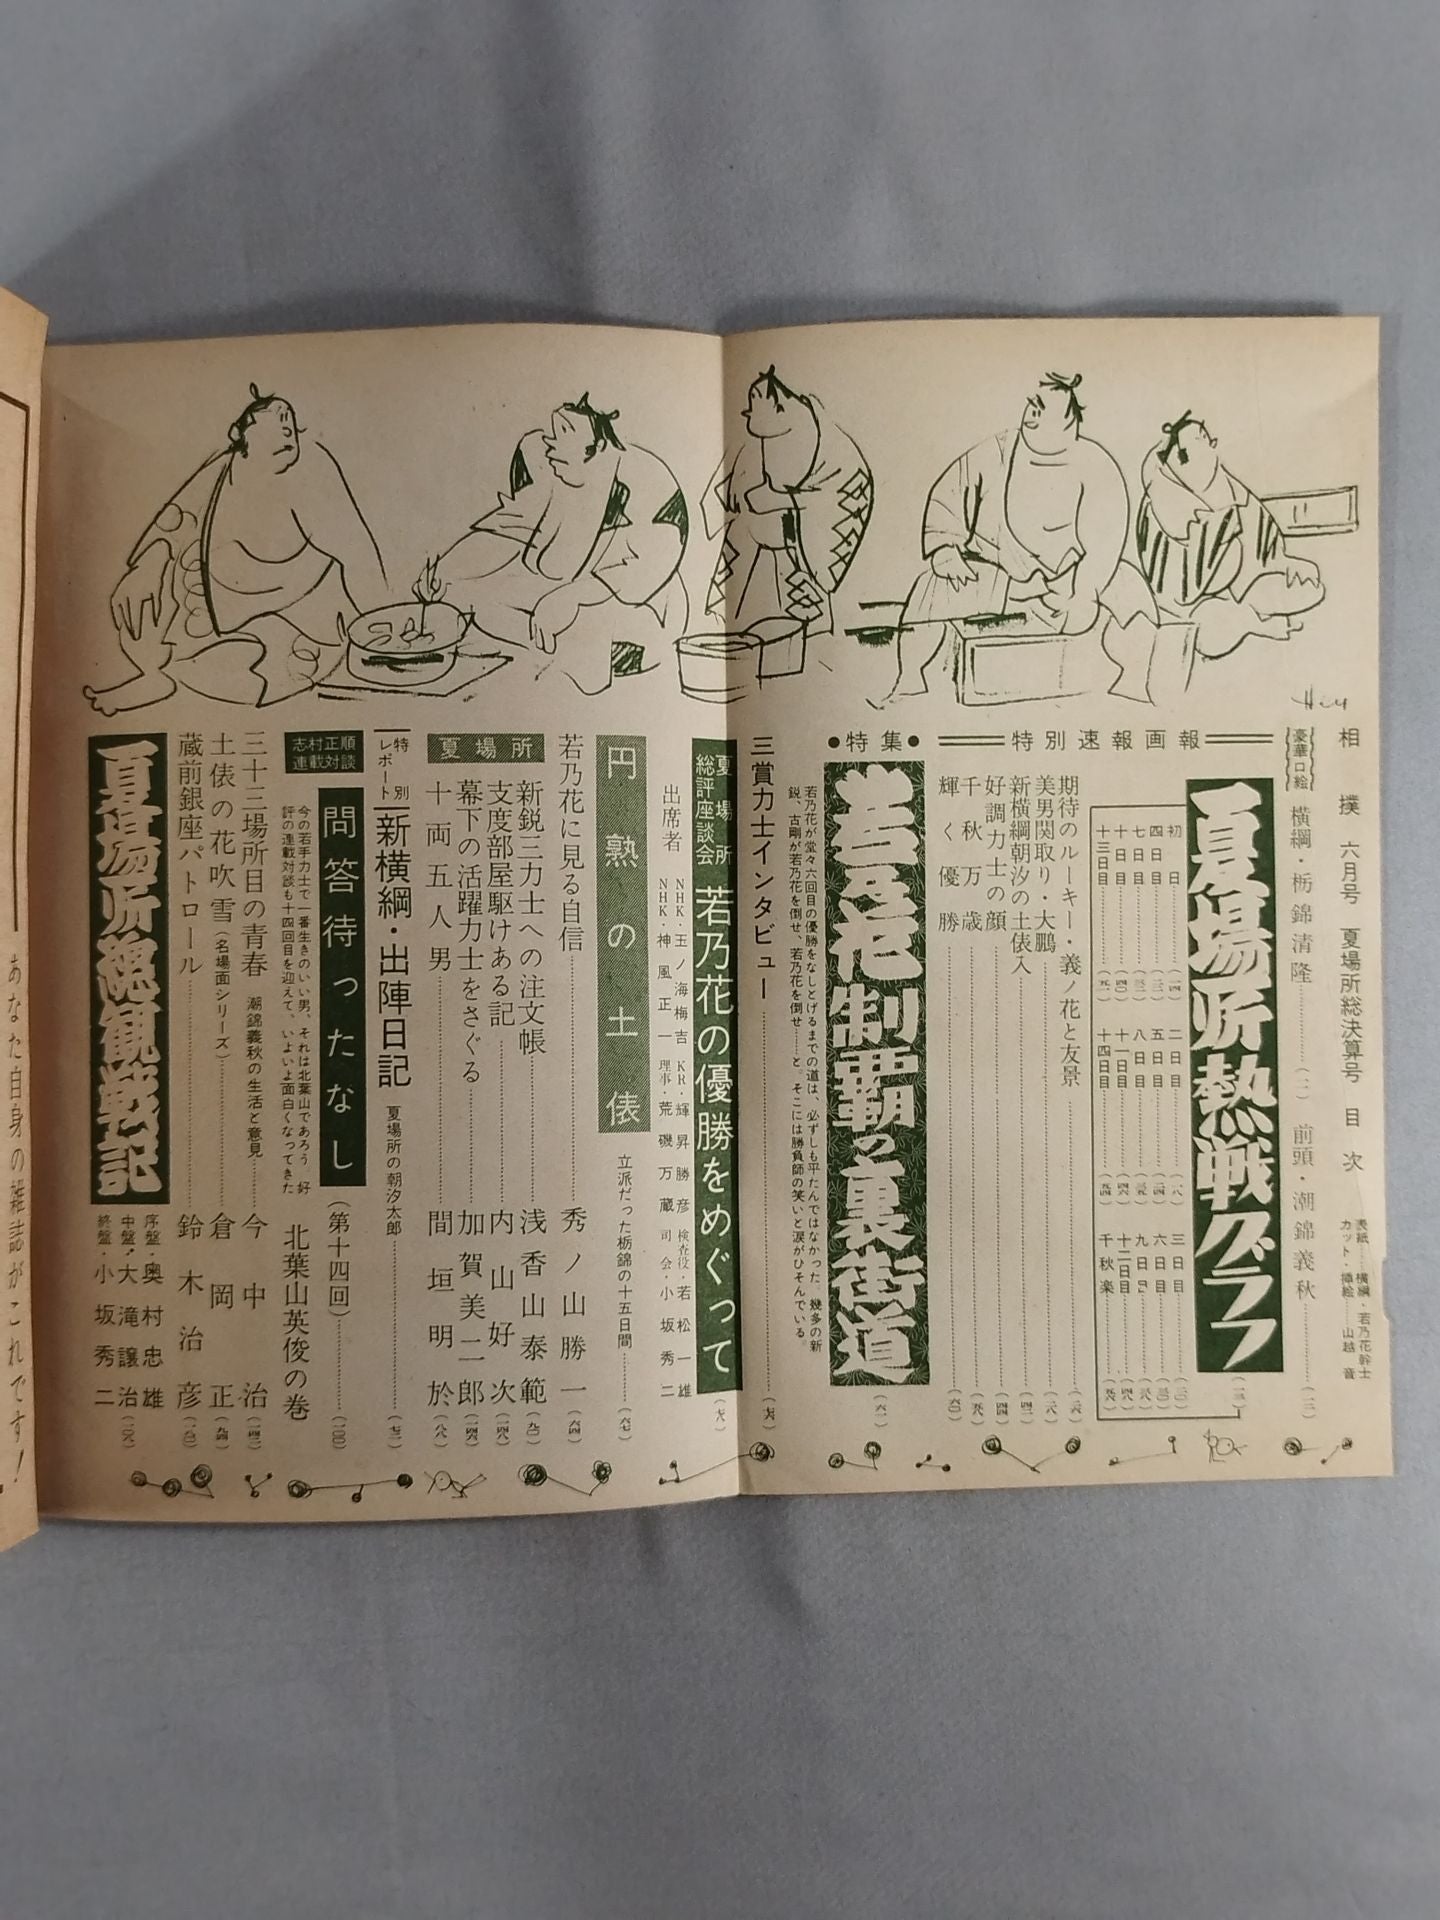 相撲 六月号 夏場所総決算号 目次
表紙……横綱・若乃花幹士
カット・挿絵……山越 音
豪華口絵
横綱・栃錦清隆
前頭・潮錦義秋
特別速報画報
夏場所熱戦グラフ
初日
二日目
三日目
四日目
五日目
六日目
七日目
八日目
九日目
十日目
十一日目
十二日目
十三日目
十四日目
千秋楽
期待のルーキー・義ノ花と友景
美男関取り・大鵬
新横綱朝汐の土俵入
好調力士の顔
千秋万歳
輝く優勝
●特集●
若乃花制覇の裏街道
若乃花が堂々六回目の優勝をなしとげるまでの道は、必ずしも平たんではなかった。幾多の新
鋭、古剛が若乃花を倒せ、若乃花を倒せ……と。そこには勝負師の笑いと涙がひそんでいる。
三賞力士インタビュー
夏場所総評座談会
若乃花の優勝をめぐって
出席者
NHK・玉ノ海梅吉
KR・輝昇勝彦
検査役・若松一雄
NHK・神風正一
理事・荒磯万蔵
司会・小坂秀二
円熟の土俵
立派だった栃錦の十五日間
若乃花に見る自信
秀ノ山勝一
夏場所
新鋭三力士への注文帳
浅香山泰範
支度部屋駆けある記
内山好次
幕下の活躍力士をさぐる
加賀美二郎
十両五人男
間垣明於
特別レポート
新横綱・出陣日記
夏場所の朝汐太郎
志村正順連載対談
問答待ったなし
(第十四回)
北葉山英俊の巻
今の若手力士で一番生きのいい男、それは北葉山であろう 好
評の連載対談も十四回目を迎えて、いよいよ面白くなってきた
三十三場所目の青春
潮錦義秋の生活と意見
今中治
土俵の花吹雪(名場面シリーズ)
倉岡正
蔵前銀座パトロール
鈴木治彦
夏場所総観戦記
序盤・奥村忠雄
中盤・大滝譲治
終盤・小坂秀二
あなた自身の雑誌がこれです!